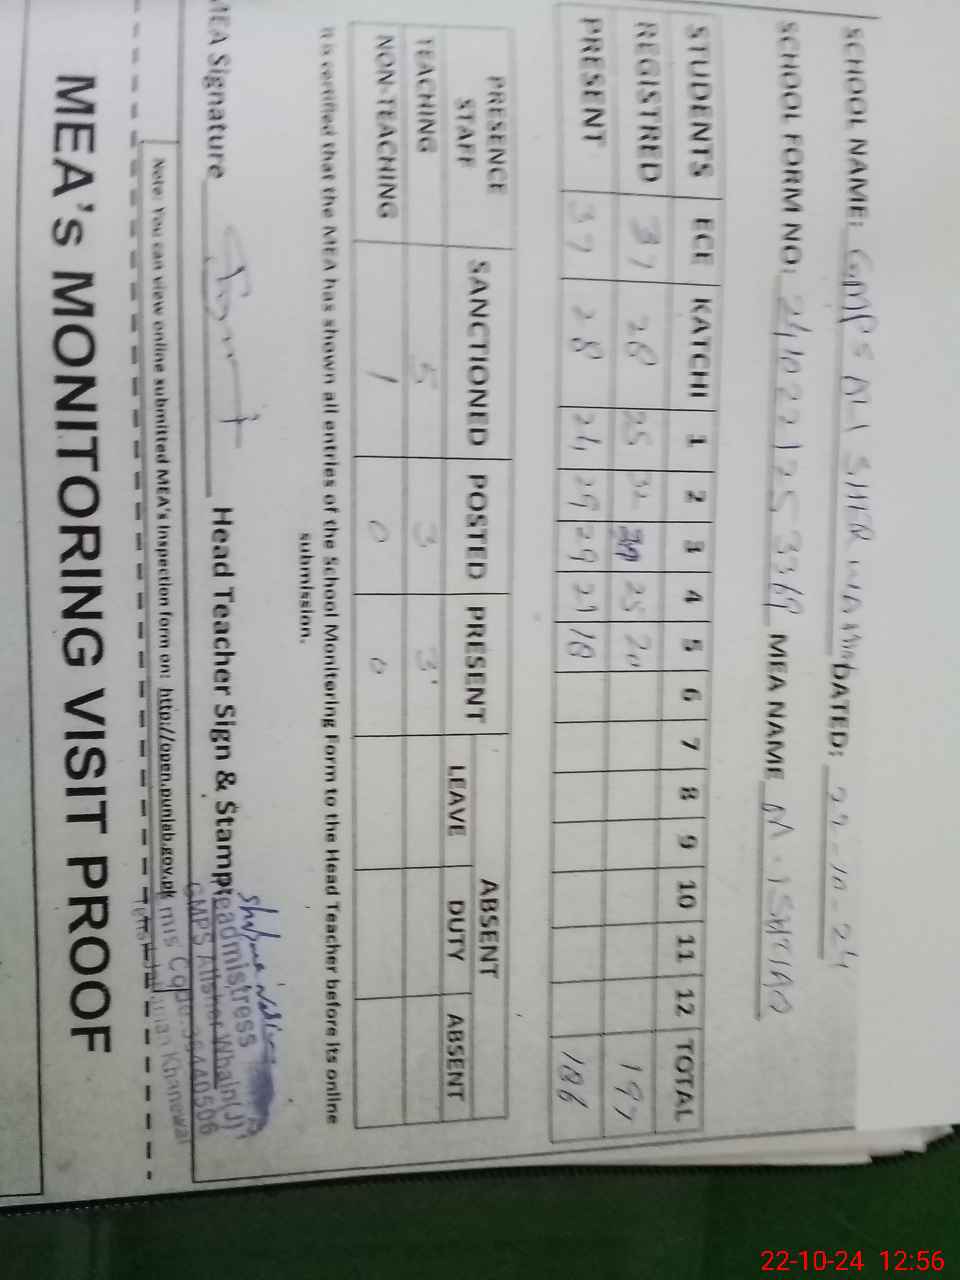 SCHOOL NAME: GMPS ALI SHER DATED: 22-10-24
SCHOOL FORM NO: MEA NAME M. ISHTIAQ
STUDENTS ECE KATCHI 1 2 3 4 5 6 7 8 9 10 11 12 TOTAL
REGISTRED 37 28 25 32 25 20 197
PRESENT 37 28 24 29 29 21 18 186
PRESENCE STAFF SANCTIONED POSTED PRESENT ABSENT
LEAVE DUTY ABSENT
TEACHING 5 3 3
NON-TEACHING 1 0 0
It is certified that the MEA has shown all entries of the School Monitoring Form to the Head Teacher before its online
submission.
MEA Signature Head Teacher Sign & Stamp
Headmistress
Note: You can view online submitted MEA's Inspection form on: http://open.punjab.gov.pk
MEA's MONITORING VISIT PROOF
22-10-24 12:56